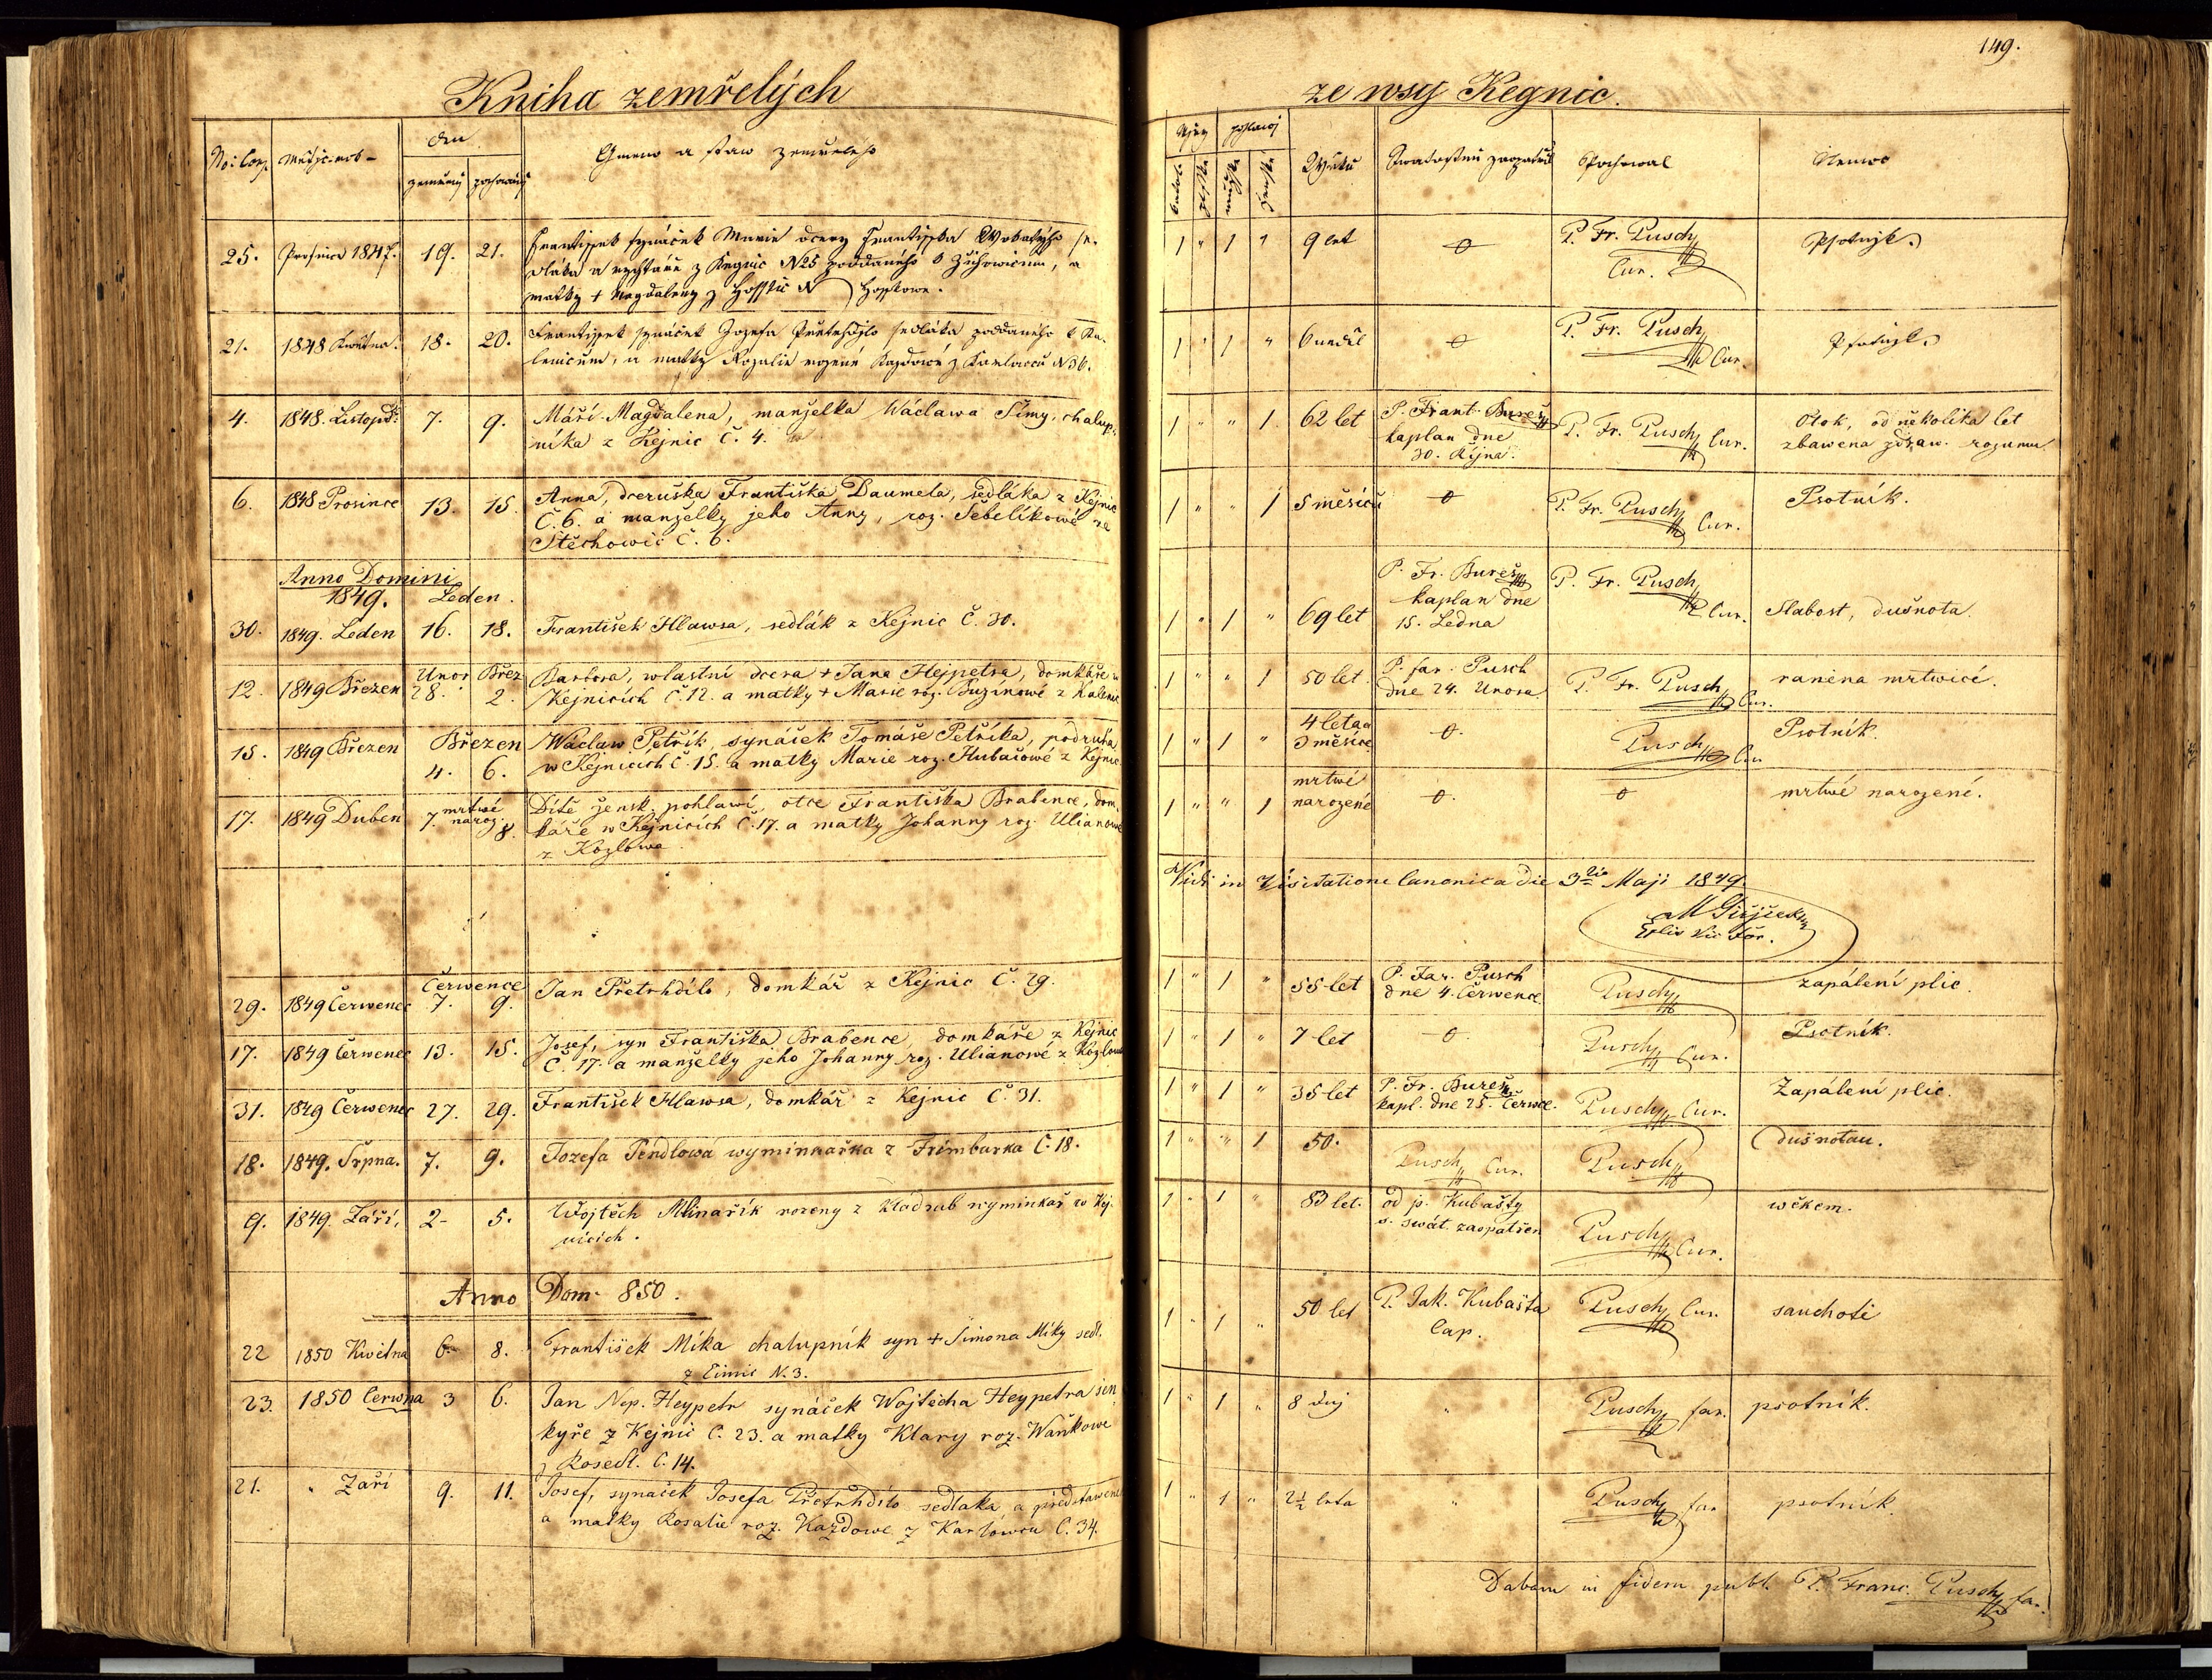 149.
Kniha zemřelých
ze wsy Kegnic.
No: Conf.
den
zemřený
pochowaný
Gmeno a staw zemřelého
pohlawj
katol.
mužské
ženské
Wěku
Pochowal
Nemoc
25. Prosince 1847. 19. 21. Frantissek synáček Marie dcery Frantisska
sedláka a z Kegnic N25 poddaného k Žichowicům, a
matky + Magdaleny z N
1 " 1 " 9 let o P. Fr. Pusch Cur. Psotnjk.
21. 1848 Května. 18. 20. Frantissek synáček Jozefa Přetrhdjlo sedláka poddaného k Ka-
lenicům, a matky Rozalie rozené Kazdowé z Karlowců N36.
1 " 1 " 6 neděl o P. Fr. Pusch Cur. Psotnjk.
4. 1848. Listopd: 7. 9. Máří Magdalena, manželka Wáclawa Šímy, chalup-
níka z Kejnic Č. 4.
1 " " 1 62 let P. Frant. Bureš
kaplan dne
30. Října.
P. Fr. Pusch Cur.
Otok, od několika let
zbawena zdraw. rozumu
6. 1848 Prosince 13. 15. Anna, dceruška Františka Daumela, sedláka z Kejnic
Č. 6. a manželky jeho Anny, roz. Šebelíkowé ze
Štěchowic č. 6.
1 " " 1 5 měsíců o P. Fr. Pusch Cur. Psotník.
Anno Domini
1849. Leden.
30. 1849. Leden 16. 18. František Hlawsa, sedlák z Kejnic Č. 30.
1 " 1 " 69 let P. Fr. Bureš
kaplan dne
15. Ledna
P. Fr. Pusch Cur. Slabost, dušnota.
12. 1849 Březen Unor 28. Břez 2. Barbora, wlastní dcera + Jana Hejpetra, domkáře w
Kejnicích Č. 12. a matky + Marie roz. Buzinowé z Kalenic
1 " " 1 50 let. P. far. Pusch
dne 24. Unora
P. Fr. Pusch Cur. raněna mrtwicí.
15. 1849 Březen Březen
4. 6. Wáclaw Petřík, synáček Tomáše Petříka, podruha
w Kejnicích č. 15. a matky Marie roz. Hubačowé z Kejnic
1 " 1 " 4 leta a
3 měsíce o. Pusch Cur Psotník.
17. 1849 Duben 7. mrtwé
naroz. 8. Dítě žensk. pohlawí, otce Františka Brabence, dom-
káře w Kejnicích Č. 17. a matky Johanny roz Ulianowé
z Kozlowa.
1 " " 1 mrtwé
narozené o. o mrtwé narozené.
Vidi in Visitatione Canonica die 3tia Maji 1849
29. 1849 Čerwenec Čerwence
7. 9. Jan Přetrhdílo, domkář z Kejnic Č. 29.
1 " 1 " 55 let P. Far. Pusch
dne 4. Čerwence. Pusch zapálení plic.
17. 1849 Čerwenec 13. 15. Josef, syn Františka Brabence, domkáře z Kejnic
Č. 17. a manželky jeho Johanny roz. Ulianowé z Kozlowa
1 " 1 " 7 let o. Pusch Cur. Psotník.
31. 1849 Čerwenec 27. 29. František Hlawsa, domkář z Kejnic Č. 31.
1 " 1 " 35 let P. Fr. Bureš
kapl. dne 25. Čerwce. Pusch Cur. Zapálení plic.
18. 1849. Srpna. 7. 9. Jozefa Pendlowá wyminkařka z Frimburka Č. 18.
1 " " 1 50. Pusch Cur. Pusch dušnotau.
9. 1849. Září, 2- 5. Wojtěch Mlinařík rozeny z Kladrub wyminkař w Kej-
nicích.
1 " 1 " 83 let. od p. Kubašty
s. swát. zaopatřen Pusch Cur. wěkem.
Anno Dom. 850.
22 1850 Kwětna 6. 8. František Mika chalupník syn + Šimona Miky sedl.
N. 3.
1 " 1 " 50 let P. Jak. Kubašta
Cap. Pusch Cur. sauchotě
23. 1850 Čerwna 3 6. Jan Nep. Heypetr synáček Wojtěcha Heypetra šen-
kyře z Kejnic Č. 23. a matky Klary roz. Waňkowe
z Rosedl. Č. 14.
1 " 1 " 8 dnj " Pusch far. psotník.
21. " Září 9. 11. Josef, synáček Josefa Přetrhdílo sedlaka a předstawene
a matky Rosalie roz. Kazdowe z Karlowců Č. 34.
1 " 1 " 2½ leta " Pusch far psotník.
Dabam in fidem publ. P. Franc. Pusch far.